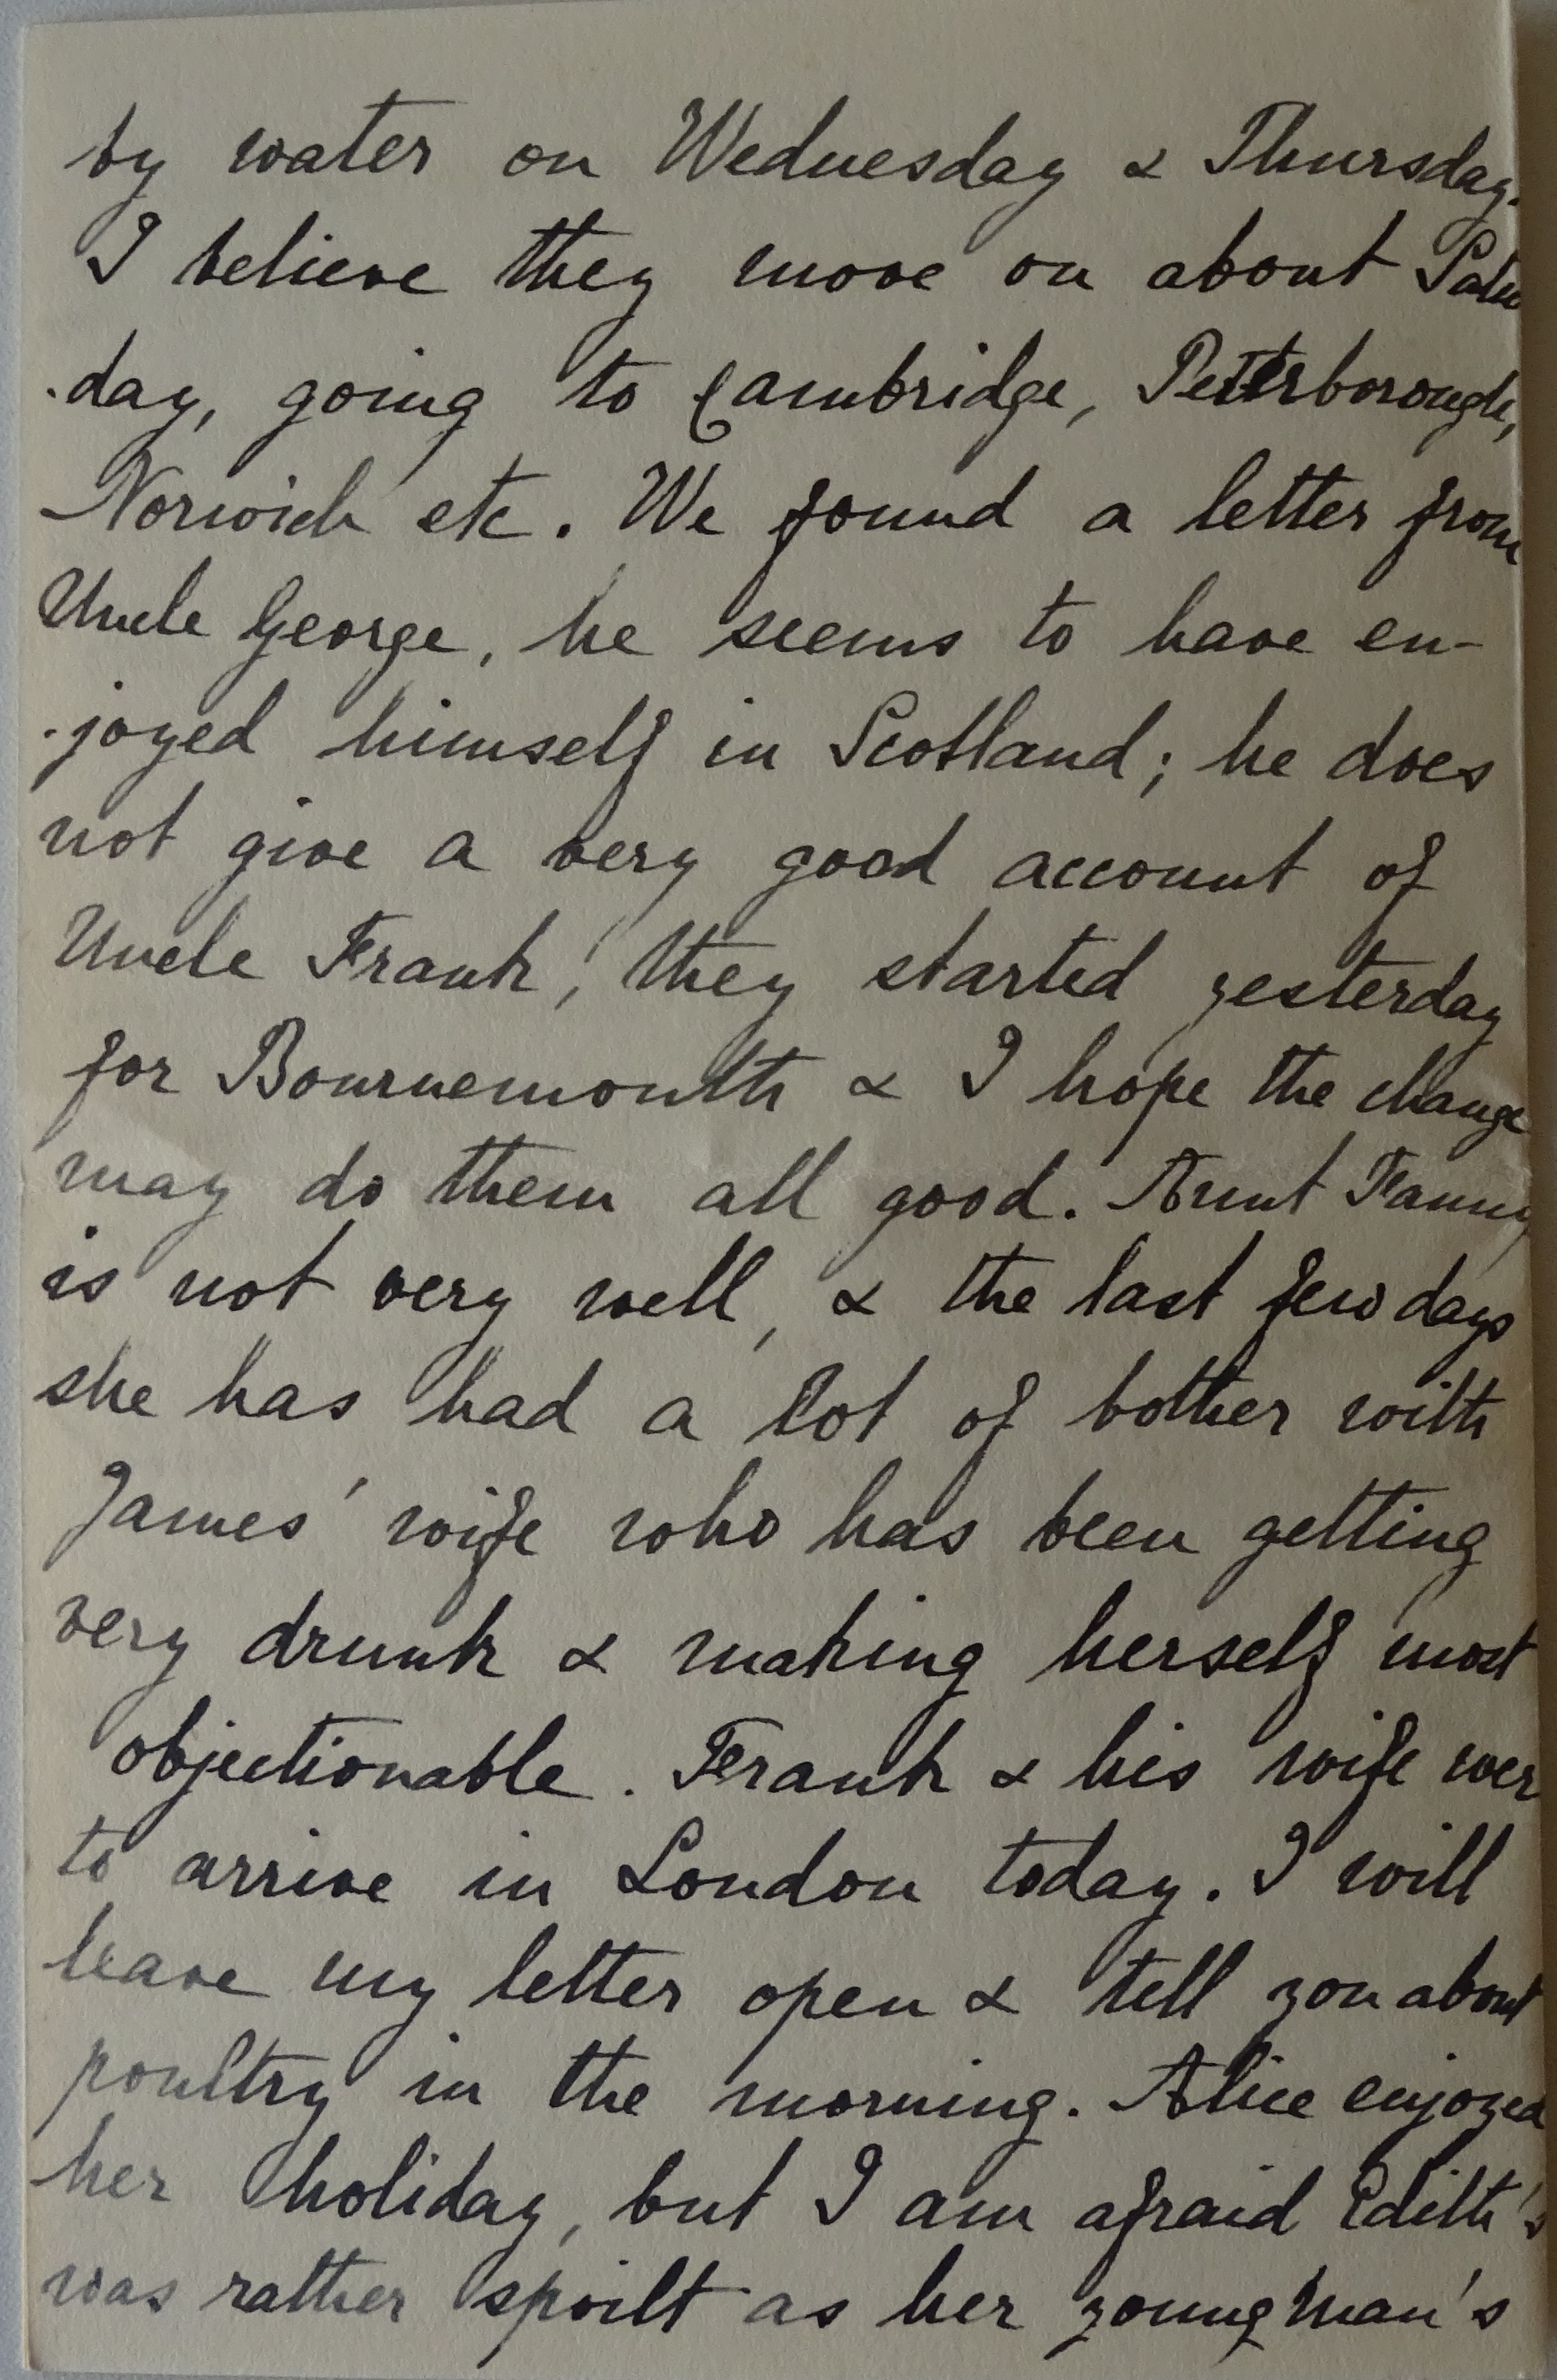 by water on Wednesday & Thursday.
I believe they move on about Satur
-day, going to Cambridge, Peterborough,
Norwich etc. We found a letter from
Uncle George, he seems to have en-
-joyed himself in Scotland; he does
not give a very good account of
Uncle Frank, they started yesterday
for Bournemouth & I hope the change
may do them all good. Aunt Fanny
is not very well, & the last few days
she has had a lot of bother with
James' wife who has been getting
very drunk & making herself most
objectionable. Frank & his wife were
to arrive in London today. I will
leave my letter open & tell you about
poultry in the morning. Alice enjoyed
her holiday, but I am afraid Edith's
was rather spoilt as her young man's